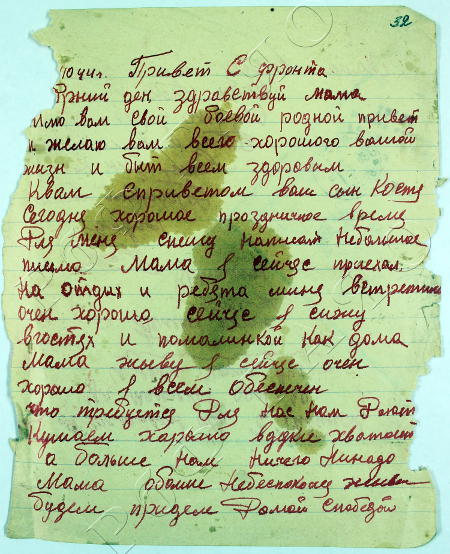 32
1044г. Привет С фронта
рний ден здравствуй мама
шлю вам свой боевой родной привет
и желаю вам всего хорошого вашой
жизн и быт всем здоровим
Квам сприветом ваш сын Костя
Сегодня хорошое праздничное время
Для меня спешу написат Небольшое
писмо Мама я сейчс приехал
На отдых и ребята миня встретили
очен хорошо сейчс я сижу
вгостях и помалинкой Как дома
Мама жыву я сейчс очен
хорошо я всем обеспечен
что требуется Для Нас Нам Дают
Кушаем харошо вдцке хватает
а больше Нам Ничего Нинадо
Мама обомне Небеспокойс живы
будем придем Домой Спобедой